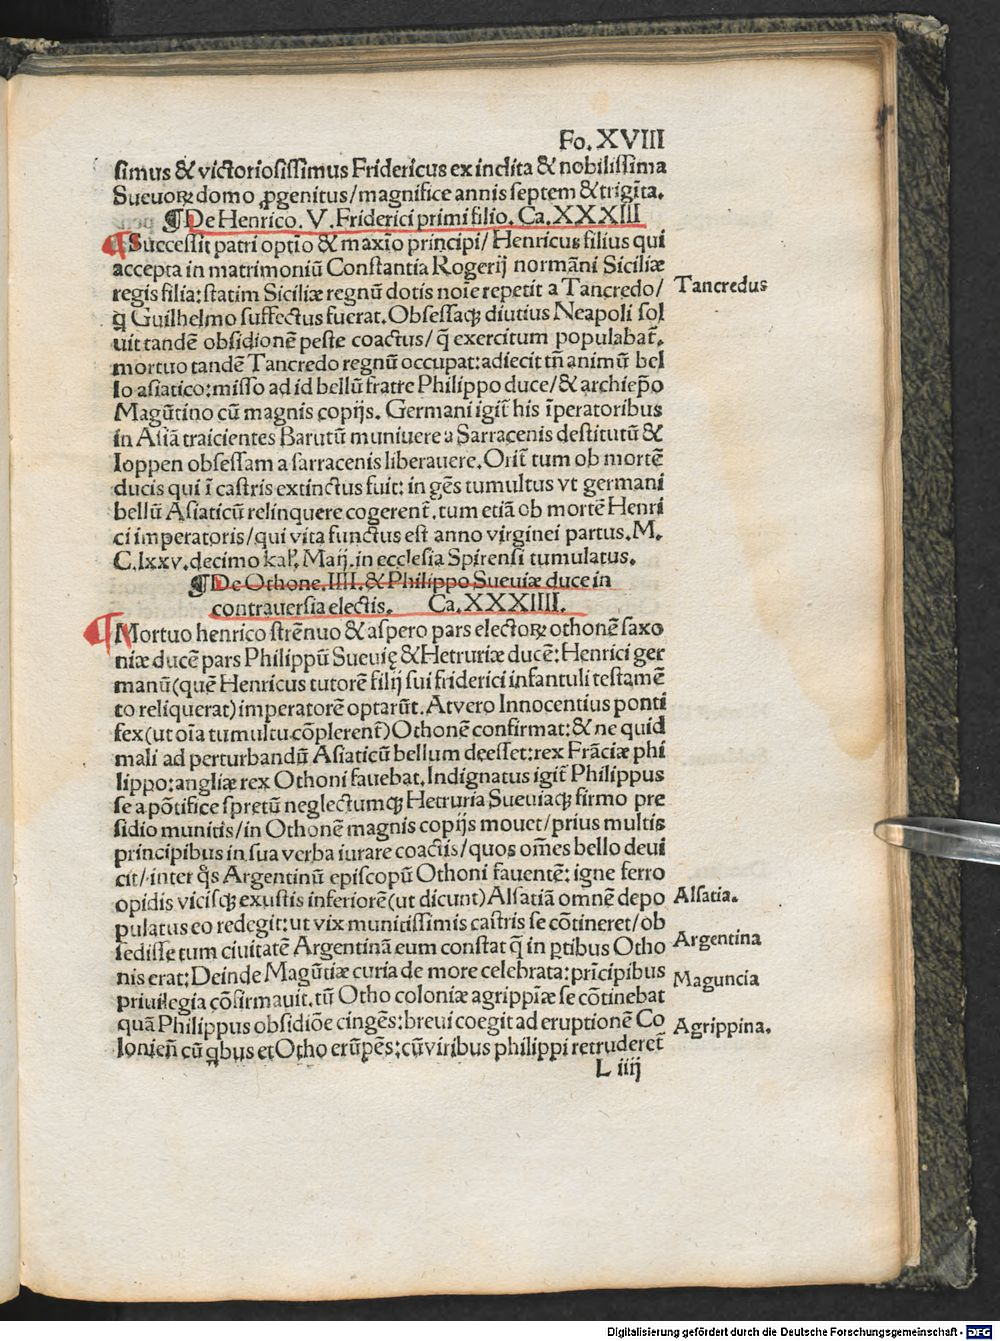 Fo. XVIII
ſimus & victorioſiſſimus Fridericus ex inclita & nobiliſſima
Sueuoꝝ domo ꝓgenitus/magnifice annis ſeptem & trigīta.
¶ De Henrico. V. Friderici primi filio. Ca. XXXIII
¶ Succeſſit patri optīo & maxīo principi/ Henricus filius qui
accepta in matrimoniū Conſtantia Rogerij normāni Siciliæ
regis filia: ſtatim Siciliæ regnū dotis noīe repetit a Tancredo/
Tancredus
q̄ Guilhelmo ſuffectus fuerat. Obſeſſaqꝫ diutius Neapoli ſol
uit tandē obſidionē peſte coactus/ q̄ exercitum populabat̄.
mortuo tandē Tancredo regnū occupat: adiecit tn̄ animū bel
lo aſiatico: miſſo ad id bellū fratre Philippo duce/ & archiep̄o
Magūtino cū magnis copijs. Germani igit̄ his īperatoribus
in Aſiā traicientes Barutū muniuere a Sarracenis deſtitutū &
Ioppen obſeſſam a ſarracenis liberauere. Orit̄ tum ob mortē
ducis qui ī caſtris extinctus fuit: in gēs tumultus vt germani
bellū Aſiaticū relinquere cogerent̄. tum etiā ob mortē Henri
ci imperatoris/ qui vita functus eſt anno virginei partus. M.
C. lxxv. decimo kal. Maij. in eccleſia Spirenſi tumulatus.
¶ De Othone. IIII. & Philippo Sueuiæ duce in
contrauerſia electis. Ca. XXXIIII.
¶ Mortuo henrico ſtrēnuo & aſpero pars electoꝝ othonē ſaxo
niæ ducē pars Philippū Sueuię & Hetruriæ ducē: Henrici ger
manū (quē Henricus tutorē filij ſui friderici infantuli teſtamē
to reliquerat) imperatorē optarūt. At vero Innocentius ponti
fex (ut oīa tumultu cōplerent̄) Othonē confirmat: & ne quid
mali ad perturbandū Aſiaticū bellum deeſſet: rex Frāciæ phi
lippo: angliæ rex Othoni fauebat. Indignatus igit̄ Philippus
ſe a pōtifice ſpretū neglectumqꝫ Hetruria Sueuiaqꝫ firmo pre
ſidio munitis/ in Othonē magnis copijs mouet/ prius multis
principibus in ſua verba iurare coactis/ quos om̄es bello deui
cit/ inter q̄s Argentinū epiſcopū Othoni fauentē: igne ferro
opidis viciſqꝫ exuſtis inferiorē (ut dicunt) Alſatiā omnē depo
Alſatia.
pulatus eo redegit: ut vix munitiſſimis caſtris ſe cōtineret/ ob
ſediſſe tum ciuitatē Argentinā eum conſtat q̄ in ꝑtibus Otho
Argentina
nis erat: Deinde Magūtiæ curia de more celebrata: prīcipibus
Maguncia
priuilegia cōfirmauit. tū Otho coloniæ agrippīæ ſe cōtinebat
quā Philippus obſidiōe cingēs: breui coegit ad eruptionē Co
Agrippina.
lonien̄ cū qbus et Otho erūpēs: cū viribus philippi retruderet̄
L iiij
Digitalisierung gefördert durch die Deutsche Forschungsgemeinschaft - DFG